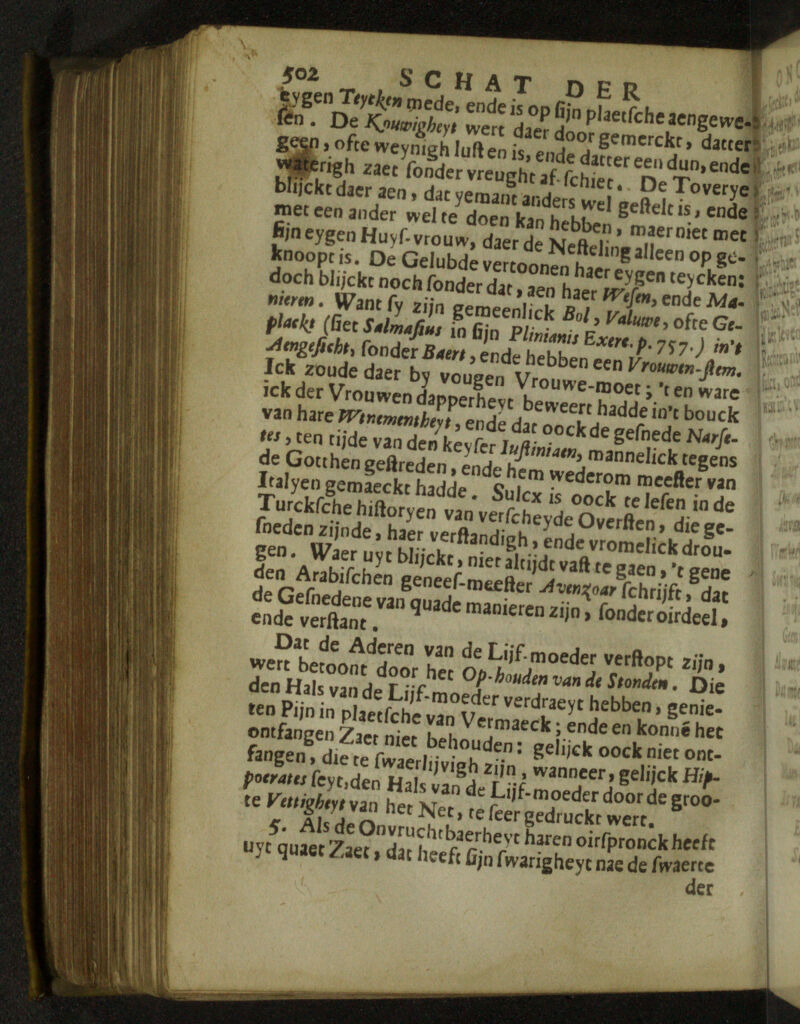 502 SCHAT DER
eygen Teycken mede, ende is op sijn plaetsche aengewe-
sen. De Kouwigheyt wert daer door gemerckt, datter
geen, ofte weynigh lusten is, ende datter een dun, ende
waterigh zaet sonder vreught af-schiet. De Toverye
blijckt daer aen, dat yemant anders wel gestelt is, ende
met een ander wel te doen kan hebben, maer niet met
sijn eygen Huys-vrouw, daer de Nesteling alleen op ge-
knoopt is. De Gelubde vertoonen haer eygen teycken:
doch blijckt noch sonder dat, aen haer Wesen, ende Ma-
nieren. Want sy zijn gemeenlick Bol, Valuwe, ofte Ge-
plackt (siet Salmasius in sijn Plinianis Exere. p. 757.) in't
Aengesicht, sonder Baert, ende hebben een Vrouwen-stem.
Ick zoude daer by vougen Vrouwe-moet; 't en ware
ick der Vrouwen dapperheyt beweert hadde in't bouck
van hare Wtnementheyt, ende dat oock de gesnede Narse-
tes, ten tijde van den keyser Iustiniaen, mannelick tegens
de Gotthen gestreden, ende hem wederom meester van
Italyen gemaeckt hadde. Sulcx is oock te lesen in de
Turcksche historyen van verscheyde Oversten, die ge-
sneden zijnde, haer verstandigh, ende vromelick drou-
gen. Waer uyt blijckt, niet altijdt vast te gaen, 't gene
den Arabischen genees-meester Avenzoar schrijft, dat
de Gesnedene van quade manieren zijn, sonder oirdeel,
ende verstant.
Dat de Aderen van de Lijf-moeder verstopt zijn,
wert betoont door het Op-houden van de Stonden. Die
den Hals van de Lijf-moeder verdraeyt hebben, genie-
ten Pijn in plaetsche van Vermaeck; ende en konnē het
ontfangen Zaet niet behouden: gelijck oock niet ont-
fangen, die te swaerlijvigh zijn, wanneer, gelijck Hip-
pocrates seyt, den Hals van de Lijf-moeder door de groo-
te Vettigheyt van het Net, te seer gedruckt wert.
5. Als de Onvruchtbaerheyt haren oirspronck heeft
uyt quaet Zaet, dat heeft sijn swarigheyt nae de swaerte
der